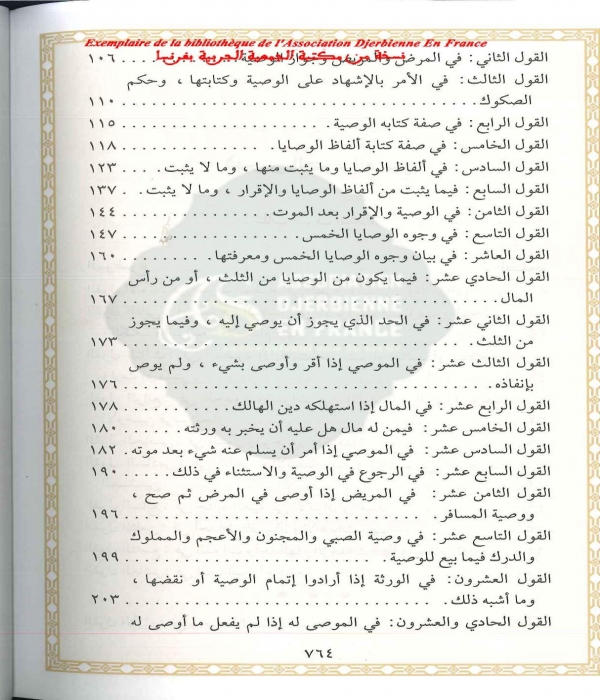 Exemplaire de la bibliothèque de l'Association Djerbienne En France
نسخة من مكتبة الجربية بفرنسا
القول الثاني: في المرض . . . . ١٠٦
القول الثالث: في الأمر بالإشهاد على الوصية وكتابتها ، وحكم
الصكوك . . . . . . . . . . ١١٠
القول الرابع: في صفة كتابه الوصية. . . . . . . . . . ١١٥
القول الخامس: في صفة كتابة ألفاظ الوصايا. . . . . . . . . . ١١٨
القول السادس: في ألفاظ الوصايا وما يثبت منها ، وما لا يثبت. . . . ١٢٣
القول السابع: فيما يثبت من ألفاظ الوصايا والإقرار ، وما لا يثبت. . ١٣٧
القول الثامن: في الوصية والإقرار بعد الموت. . . . . . . . . . ١٤٤
القول التاسع: في وجوه الوصايا الخمس. . . . . . . . . . ١٤٧
القول العاشر: في بيان وجوه الوصايا الخمس ومعرفتها. . . . . . . ١٦٠
القول الحادي عشر: فيما يكون من الوصايا من الثلث ، أو من رأس
المال . . . . . . . . . . ١٦٧
القول الثاني عشر: في الحد الذي يجوز أن يوصي إليه ، وفيما يجوز
من الثلث. . . . . . . . . . ١٧٣
القول الثالث عشر: في الموصي إذا أقر وأوصى بشيء ، ولم يوص
بإنفاذه. . . . . . . . . . ١٧٦
القول الرابع عشر: في المال إذا استهلكه دين الهالك. . . . . . . ١٧٨
القول الخامس عشر: فيمن له مال هل عليه أن يخبر به ورثته. . . . ١٨٠
القول السادس عشر: في الموصي إذا أمر أن يسلم عنه شيء بعد موته. . ١٨٢
القول السابع عشر: في الرجوع في الوصية والاستثناء في ذلك. . . . ١٩٠
القول الثامن عشر: في المريض إذا أوصى في المرض ثم صح ،
ووصية المسافر. . . . . . . . . . ١٩٦
القول التاسع عشر: في وصية الصبي والمجنون والأعجم والمملوك
والدرك فيما بيع للوصية. . . . . . . . . . ١٩٩
القول العشرون: في الورثة إذا أرادوا إتمام الوصية أو نقضها ،
وما أشبه ذلك. . . . . . . . . . ٢٠٣
القول الحادي والعشرون: في الموصى له إذا لم يفعل ما أوصى له
٧٦٤
DJERBIENNE
EN FRANCE